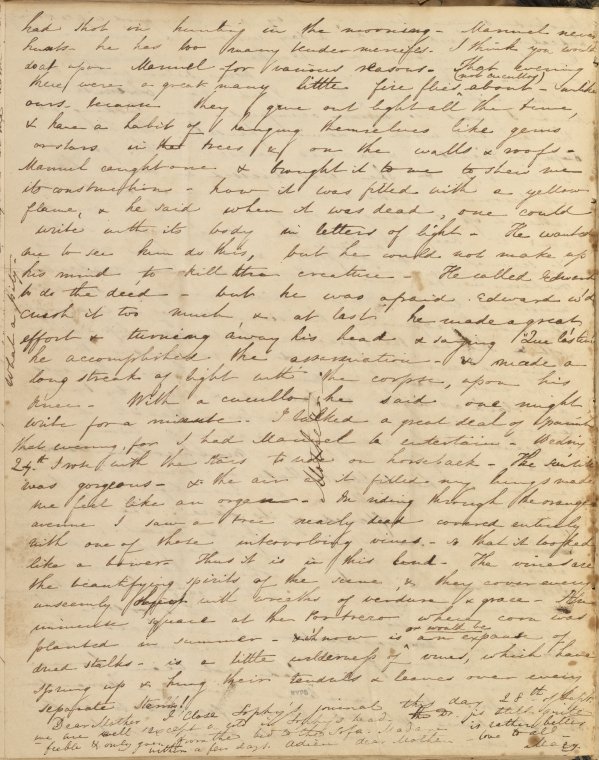 had shot in hunting in the morning - Manuel never
hunts - he has too many tender mercies. I think you would
doat upon Manuel for various reasons - That evening
(not cucullos)
there were a great many little fire flies about - unlike
ours because they give out light all the time,
& have a habit of hanging themselves like gems
or stars in the trees & on the walls & roofs -
Manuel caught one & brought it to me to shew me
its constructions - how it was filled with a yellow
flame, & he said when it was dead, one could
write with its body in letters of light - He wanted
me to see him do this, but he could not make up
his mind to kill the creature - He called Edward
to do the deed - but he was afraid Edward w'd
crush it too much & at last he made a great
effort & turning away his head & saying "Que lastima"
he accomplished the assassination - & made a
long streak of light with the corpse, upon his
knee - With a cucullo he said one might
write for a minute. I talked a great deal of Spanish
that evening, for I had Manuel to entertain - Wednesday
24th I rose with the stars to ride on horseback - The
was gorgeous - & the air as it filled my lungs made
me feel like an organ - In riding through the orange
avenue I saw a tree nearly dead covered entirely
with one of these intervolving vines - so that it looked
like a bower. Thus it is in this land - The vines are
the beautifying spirits of the scene, & they cover every
unseemly object with wreaths of verdure & grace - The
immense square at the Portrero where corn was
or would be
planted in summer - & now is an expanse of
dried stalks - is a little wilderness of vines, which have
sprung up & hung their tendrils & leaves over every
separate stem
Dear Mother I close Sophy's journal this day 28th of
we are well except a in Sophy's head the Dr. is rather better
feeble & only goes from the bed to the sofa. love to all -
within a few days. Adieu dear Mother - Mary
What a pity